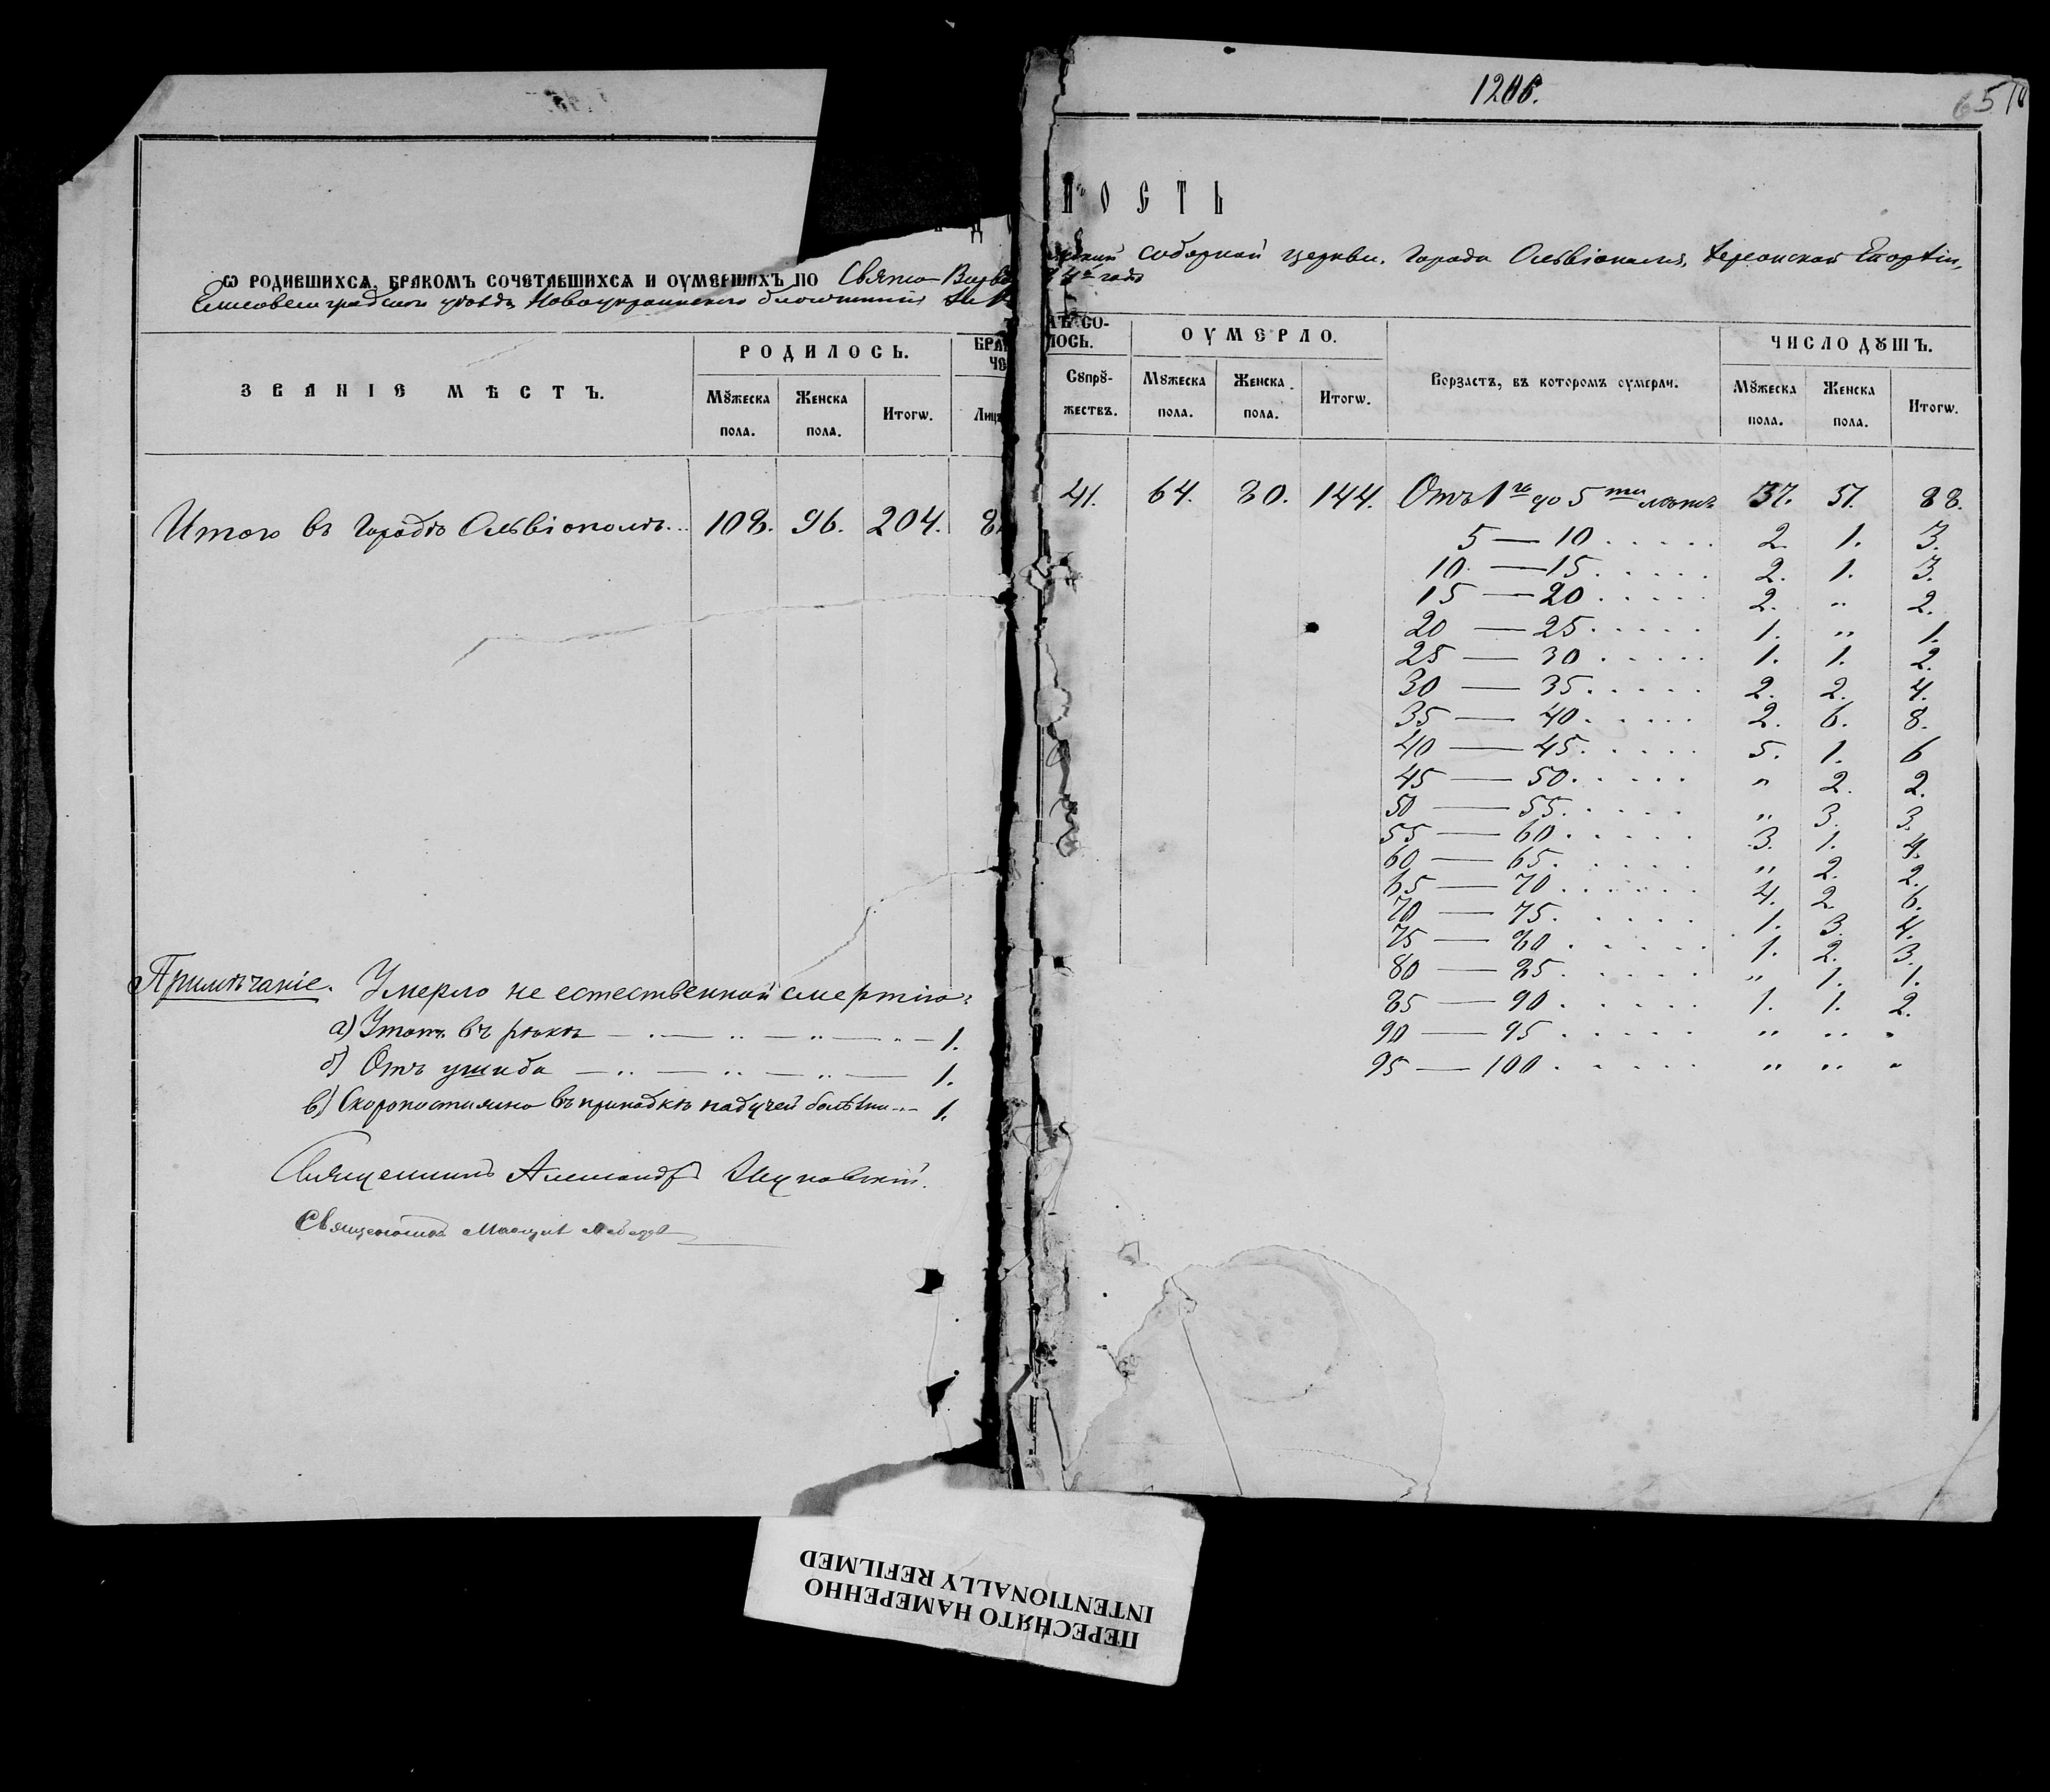 1206.
ИОСТЬ
Ѡ РОДИВШИХСѦ, БРАКОМЪ СОЧЕТАВШИХСѦ И ОУМЕРШИХЪ ПО Свято- соборной церкви, города Ольвіополя, Херсонской Епархіи,
Елисаветградскаго уѣзда, Новоукраинскаго благочинія года
ЗВАНІЕ МѢСТЪ.
РОДИЛОСЬ.
Мꙋжеска пола.
Женска пола.
Итогѡ.
Сꙋпрꙋ-
жествъ.
ОУМЕРЛО.
Мꙋжеска пола.
Женска пола.
Итогѡ.
Возрастъ, въ которомъ оумерли.
ЧИСЛО ДꙊШЪ.
Мꙋжеска пола.
Женска пола.
Итогѡ.
Итого въ городѣ Ольвіополѣ... 108. 96. 204.
41. 64. 80. 144. Отъ 1го до 5ти лѣтъ 37. 51. 88.
5 — 10 . . . . . 2. 1. 3.
10 — 15 . . . . . 2. 1. 3.
15 — 20 . . . . . 2. „ 2.
20 — 25 . . . . . 1. „ 1.
25 — 30 . . . . . 1. 1. 2.
30 — 35 . . . . . 2. 2. 4.
35 — 40 . . . . . 2. 6. 8.
40 — 45 . . . . . 5. 1. 6
45 — 50 . . . . . „ 2. 2.
50 — 55 . . . . . „ 3. 3.
55 — 60 . . . . . 3. 1. 4.
60 — 65 . . . . . „ 2. 2.
65 — 70 . . . . . 4. 2. 6.
70 — 75 . . . . . 1. 3. 4.
75 — 80 . . . . . 1. 2. 3.
80 — 85 . . . . . „ 1. 1.
85 — 90 . . . . . 1. 1. 2.
90 — 95 . . . . . „ „ „
95 — 100 . . . . . „ „ „
Примѣчаніе. Умерло не естественной смертію:
а) Утоп. въ рѣкѣ — 1.
б) Отъ ушиба — 1.
в) Скоропостижно въ припадкѣ падучей болѣзни — 1.
Священникъ Александръ
Священникъ
ПЕРЕСНЯТО НАМЕРЕННО
INTENTIONALLY REFILMED